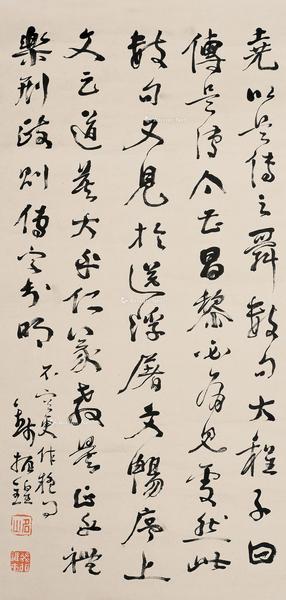 堯以是傳之舜數句大程子曰
傳是傳个甚昌黎必有見處然此
數句又見於送浮屠文暢序上
文云道莫大乎仁義教莫正乎禮
樂刑政則傳字明
不更作
錢振鍠
名山